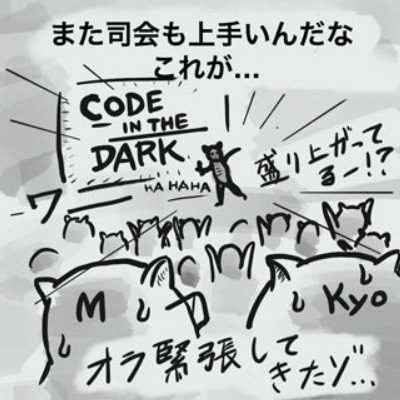 また司会も上手いんだな
これが...
CODE
IN THE
DARK
HA HAHA
盛り上がって
るー!?
ワー
M
Kyo
オラ緊張して
きたゾ...